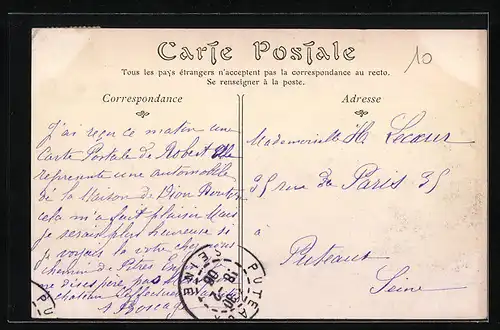 Carte Postale
10
Tous les pays étrangers n'acceptent pas la correspondance au recto.
Se renseigner à la poste.
Correspondance
J'ai reçu ce matin une
Carte Postale de Robert Elle
represente une automobile
de la Maison de Dion Bouton
cela m'a fait plaisir Mais
je serais plus heureuse si
je voyais la votre chez nous
chemin de
me
Adresse
Mademoiselle H. Lecoeur
35 rue de Paris 35
à
Puteaux
Seine
PUTEAUX
SEINE
18
30
-2
06
PU